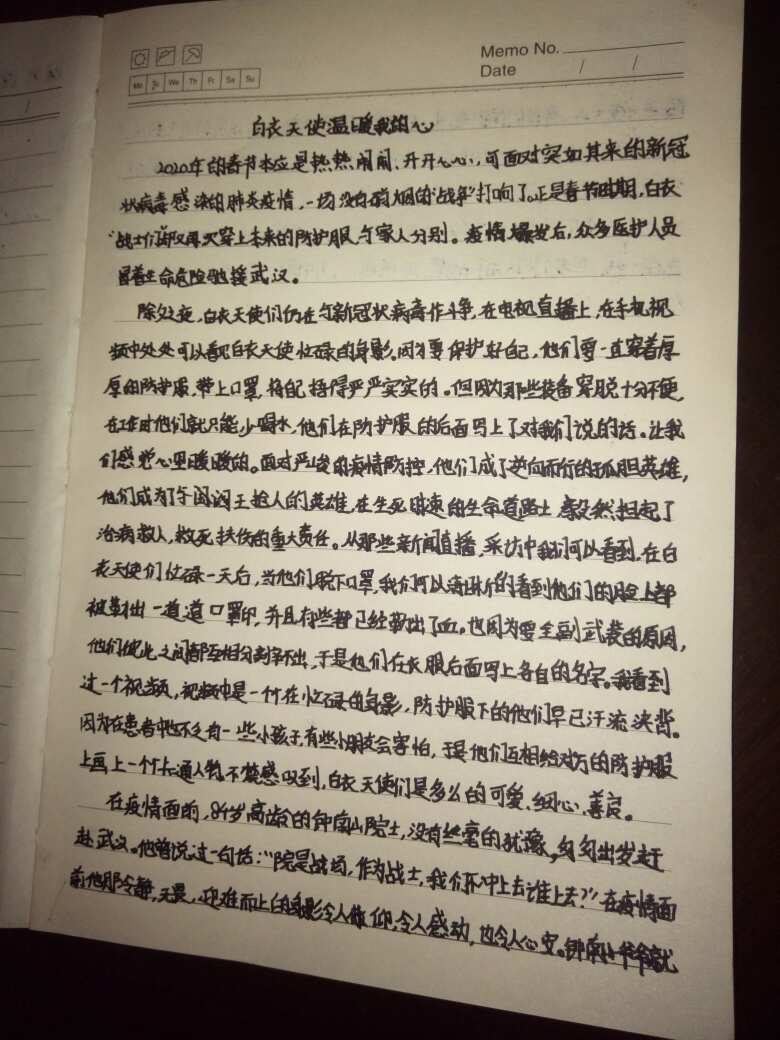 Memo No.
Date / /
Mo Tu We Th Fr Sa Su
白衣天使温暖我的心
2020年的春节本应是热热闹闹、开开心心,可面对突如其来的新冠
状病毒感染的肺炎疫情,一场没有硝烟的“战争”打响了。正是春节时期,白衣
“战士们却又再次穿上未来的防护服与家人分别。疫情爆发后,众多医护人员
冒着生命危险驰援武汉。
除夕之夜,白衣天使们仍在与新冠状病毒作斗争,在电视直播上,在手机视
频中处处可以看见白衣天使忙碌的身影。因为要保护好自己,他们要一直穿着厚
厚的防护服,带上口罩,将自己捂得严严实实的。但因为那些装备穿脱十分不便,
在工作时他们就只能少喝水,他们在防护服的后面写上了对我们说的话。让我
们感觉心里暖暖的。面对严峻的疫情防控,他们成了逆向而行的孤胆英雄,
他们成为了与阎王抢人的英雄,在生死时速的生命道路上毅然担起了
治病救人,救死扶伤的重大责任。从那些新闻直播,采访中我们可以看到,在白
衣天使们忙碌一天后,当他们脱下口罩,我们可以清晰的看到他们的脸上都
被勒出一道道口罩印,并且有些都已经勒出了血。也因为要全副武装的原因,
他们彼此之间都互相分辨不出,于是他们在衣服后面写上各自的名字。我看到
过一个视频,视频中是一个个在忙碌的身影,防护服下的他们早已汗流浃背。
因为在患者中也不乏有一些小孩子,有些小朋友会害怕,于是他们互相给对方的防护服
上画上一个个卡通人物,不禁感叹到,白衣天使们是多么的可爱、细心、善良。
在疫情面前,84岁高龄的钟南山院士,没有丝毫的犹豫,匆匆出发赶
赴武汉。他曾说过一句话:“医院是战场,作为战士,我们不冲上去谁上去?”在疫情面
前他那冷静,无畏,迎难而上的身影令人敬仰,令人感动,也令人心安。钟南山爷爷就